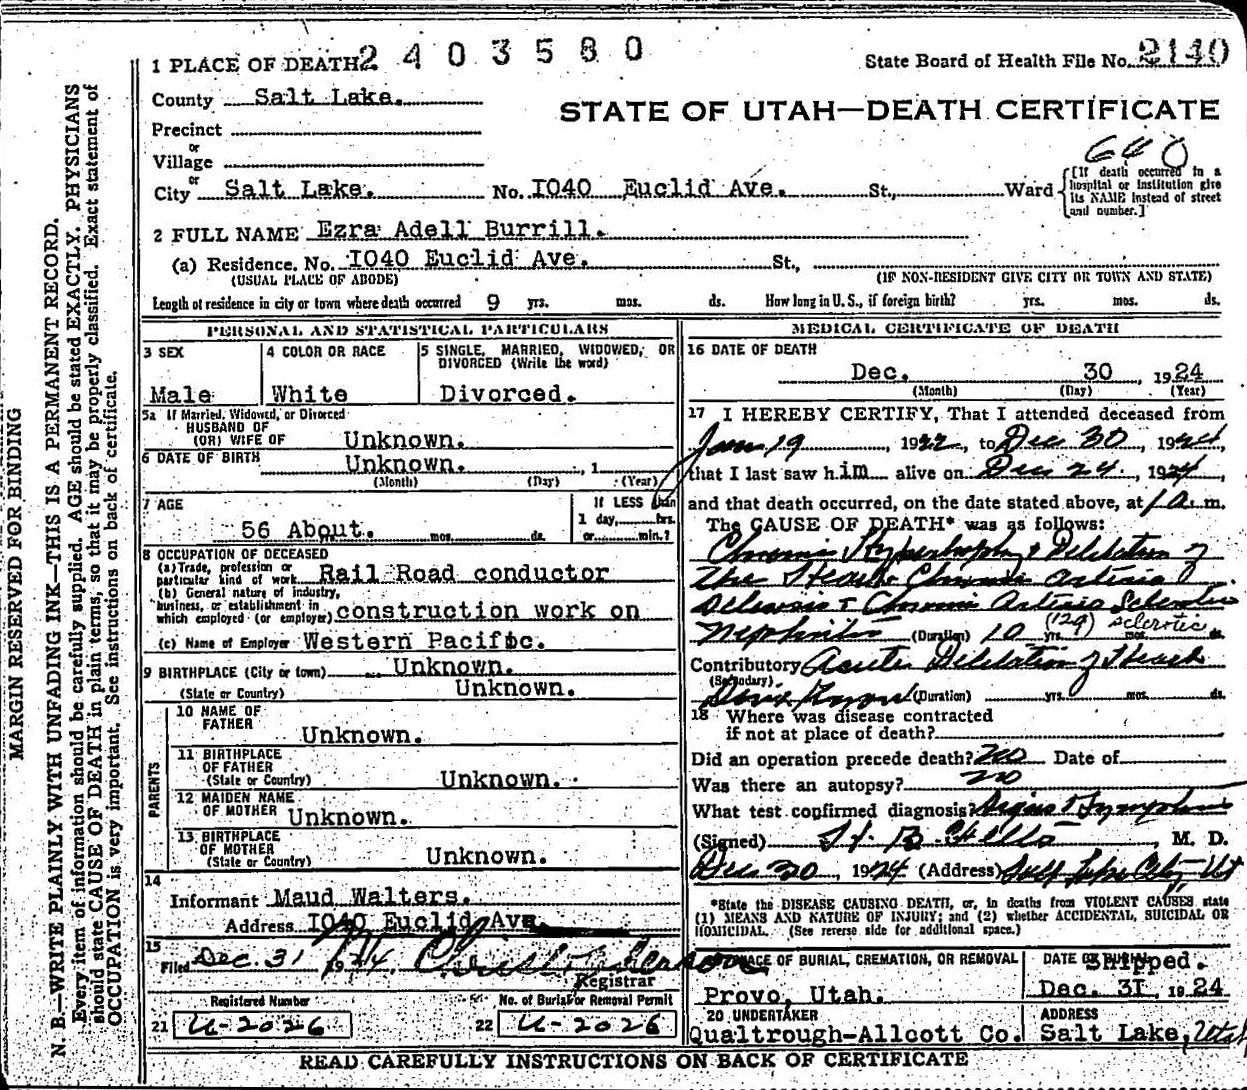 1 PLACE OF DEATH 2403580 State Board of Health File No. 2140
County Salt Lake.
STATE OF UTAH—DEATH CERTIFICATE
Precinct
or
Village
or
City Salt Lake. No. I040 Euclid Ave. St., Ward
[If death occurred in a
hospital or institution give
its NAME instead of street
and number.]
2 FULL NAME Ezra Adell Burrill.
(a) Residence. No. I040 Euclid Ave. St.,
(USUAL PLACE OF ABODE) (IF NON-RESIDENT GIVE CITY OR TOWN AND STATE)
Length of residence in city or town where death occurred 9 yrs. mos. ds. How long in U.S., if foreign birth? yrs. mos. ds.
PERSONAL AND STATISTICAL PARTICULARS
3 SEX
Male
4 COLOR OR RACE
White
5 SINGLE, MARRIED, WIDOWED, OR
DIVORCED (Write the word)
Divorced.
5a If Married, Widowed, or Divorced
HUSBAND OF
(OR) WIFE OF Unknown.
6 DATE OF BIRTH Unknown. , 1
(Month) (Day) (Year)
7 AGE
56 About. mos. ds.
If LESS than
1 day, hrs.
or min.?
8 OCCUPATION OF DECEASED
(a) Trade, profession or
particular kind of work Rail Road conductor
(b) General nature of industry,
business, or establishment in
which employed (or employer) construction work on
(c) Name of Employer Western Pacific.
9 BIRTHPLACE (City or town) Unknown.
(State or Country) Unknown.
PARENTS
10 NAME OF
FATHER
Unknown.
11 BIRTHPLACE
OF FATHER
(State or Country) Unknown.
12 MAIDEN NAME
OF MOTHER Unknown.
13 BIRTHPLACE
OF MOTHER
(State or Country) Unknown.
14
Informant Maud Walters.
Address I040 Euclid Ave.
15
Filed Dec. 31 1924
Registrar
Registered Number
21 U-2026
No. of Burial or Removal Permit
22 U-2026
MEDICAL CERTIFICATE OF DEATH
16 DATE OF DEATH
Dec. 30, 1924
(Month) (Day) (Year)
17 I HEREBY CERTIFY, That I attended deceased from
19, 1922, to Dec 30, 1924,
that I last saw him alive on Dec 24, 1924,
and that death occurred, on the date stated above, at 1 a. m.
The CAUSE OF DEATH* was as follows:
Chronic Hypertrophy & Dilatation of
The Heart Chronic Arterio
Sclerosis & Chronic Arterio Sclerotic
Nephritis (Duration) 10 yrs. (129) sclerotic mos. ds.
Contributory Acute Dilatation of Heart
(Secondary) (Duration) yrs. mos. ds.
18 Where was disease contracted
if not at place of death?
Did an operation precede death? no Date of
Was there an autopsy? no
What test confirmed diagnosis? Signs & Symptoms
(Signed) , M. D.
Dec 30, 1924 (Address) Salt Lake City Ut
*State the DISEASE CAUSING DEATH, or, in deaths from VIOLENT CAUSES state
(1) MEANS AND NATURE OF INJURY; and (2) whether ACCIDENTAL, SUICIDAL OR
HOMICIDAL. (See reverse side for additional space.)
PLACE OF BURIAL, CREMATION, OR REMOVAL
Provo, Utah.
DATE OF BURIAL
Shipped.
Dec. 3I, 1924
20 UNDERTAKER
Qualtrough-Allcott Co.
ADDRESS
Salt Lake, Utah
READ CAREFULLY INSTRUCTIONS ON BACK OF CERTIFICATE
MARGIN RESERVED FOR BINDING
N. B.—WRITE PLAINLY WITH UNFADING INK—THIS IS A PERMANENT RECORD.
Every item of information should be carefully supplied. AGE should be stated EXACTLY. PHYSICIANS
should state CAUSE OF DEATH in plain terms, so that it may be properly classified. Exact statement of
OCCUPATION is very important. See instructions on back of certificate.